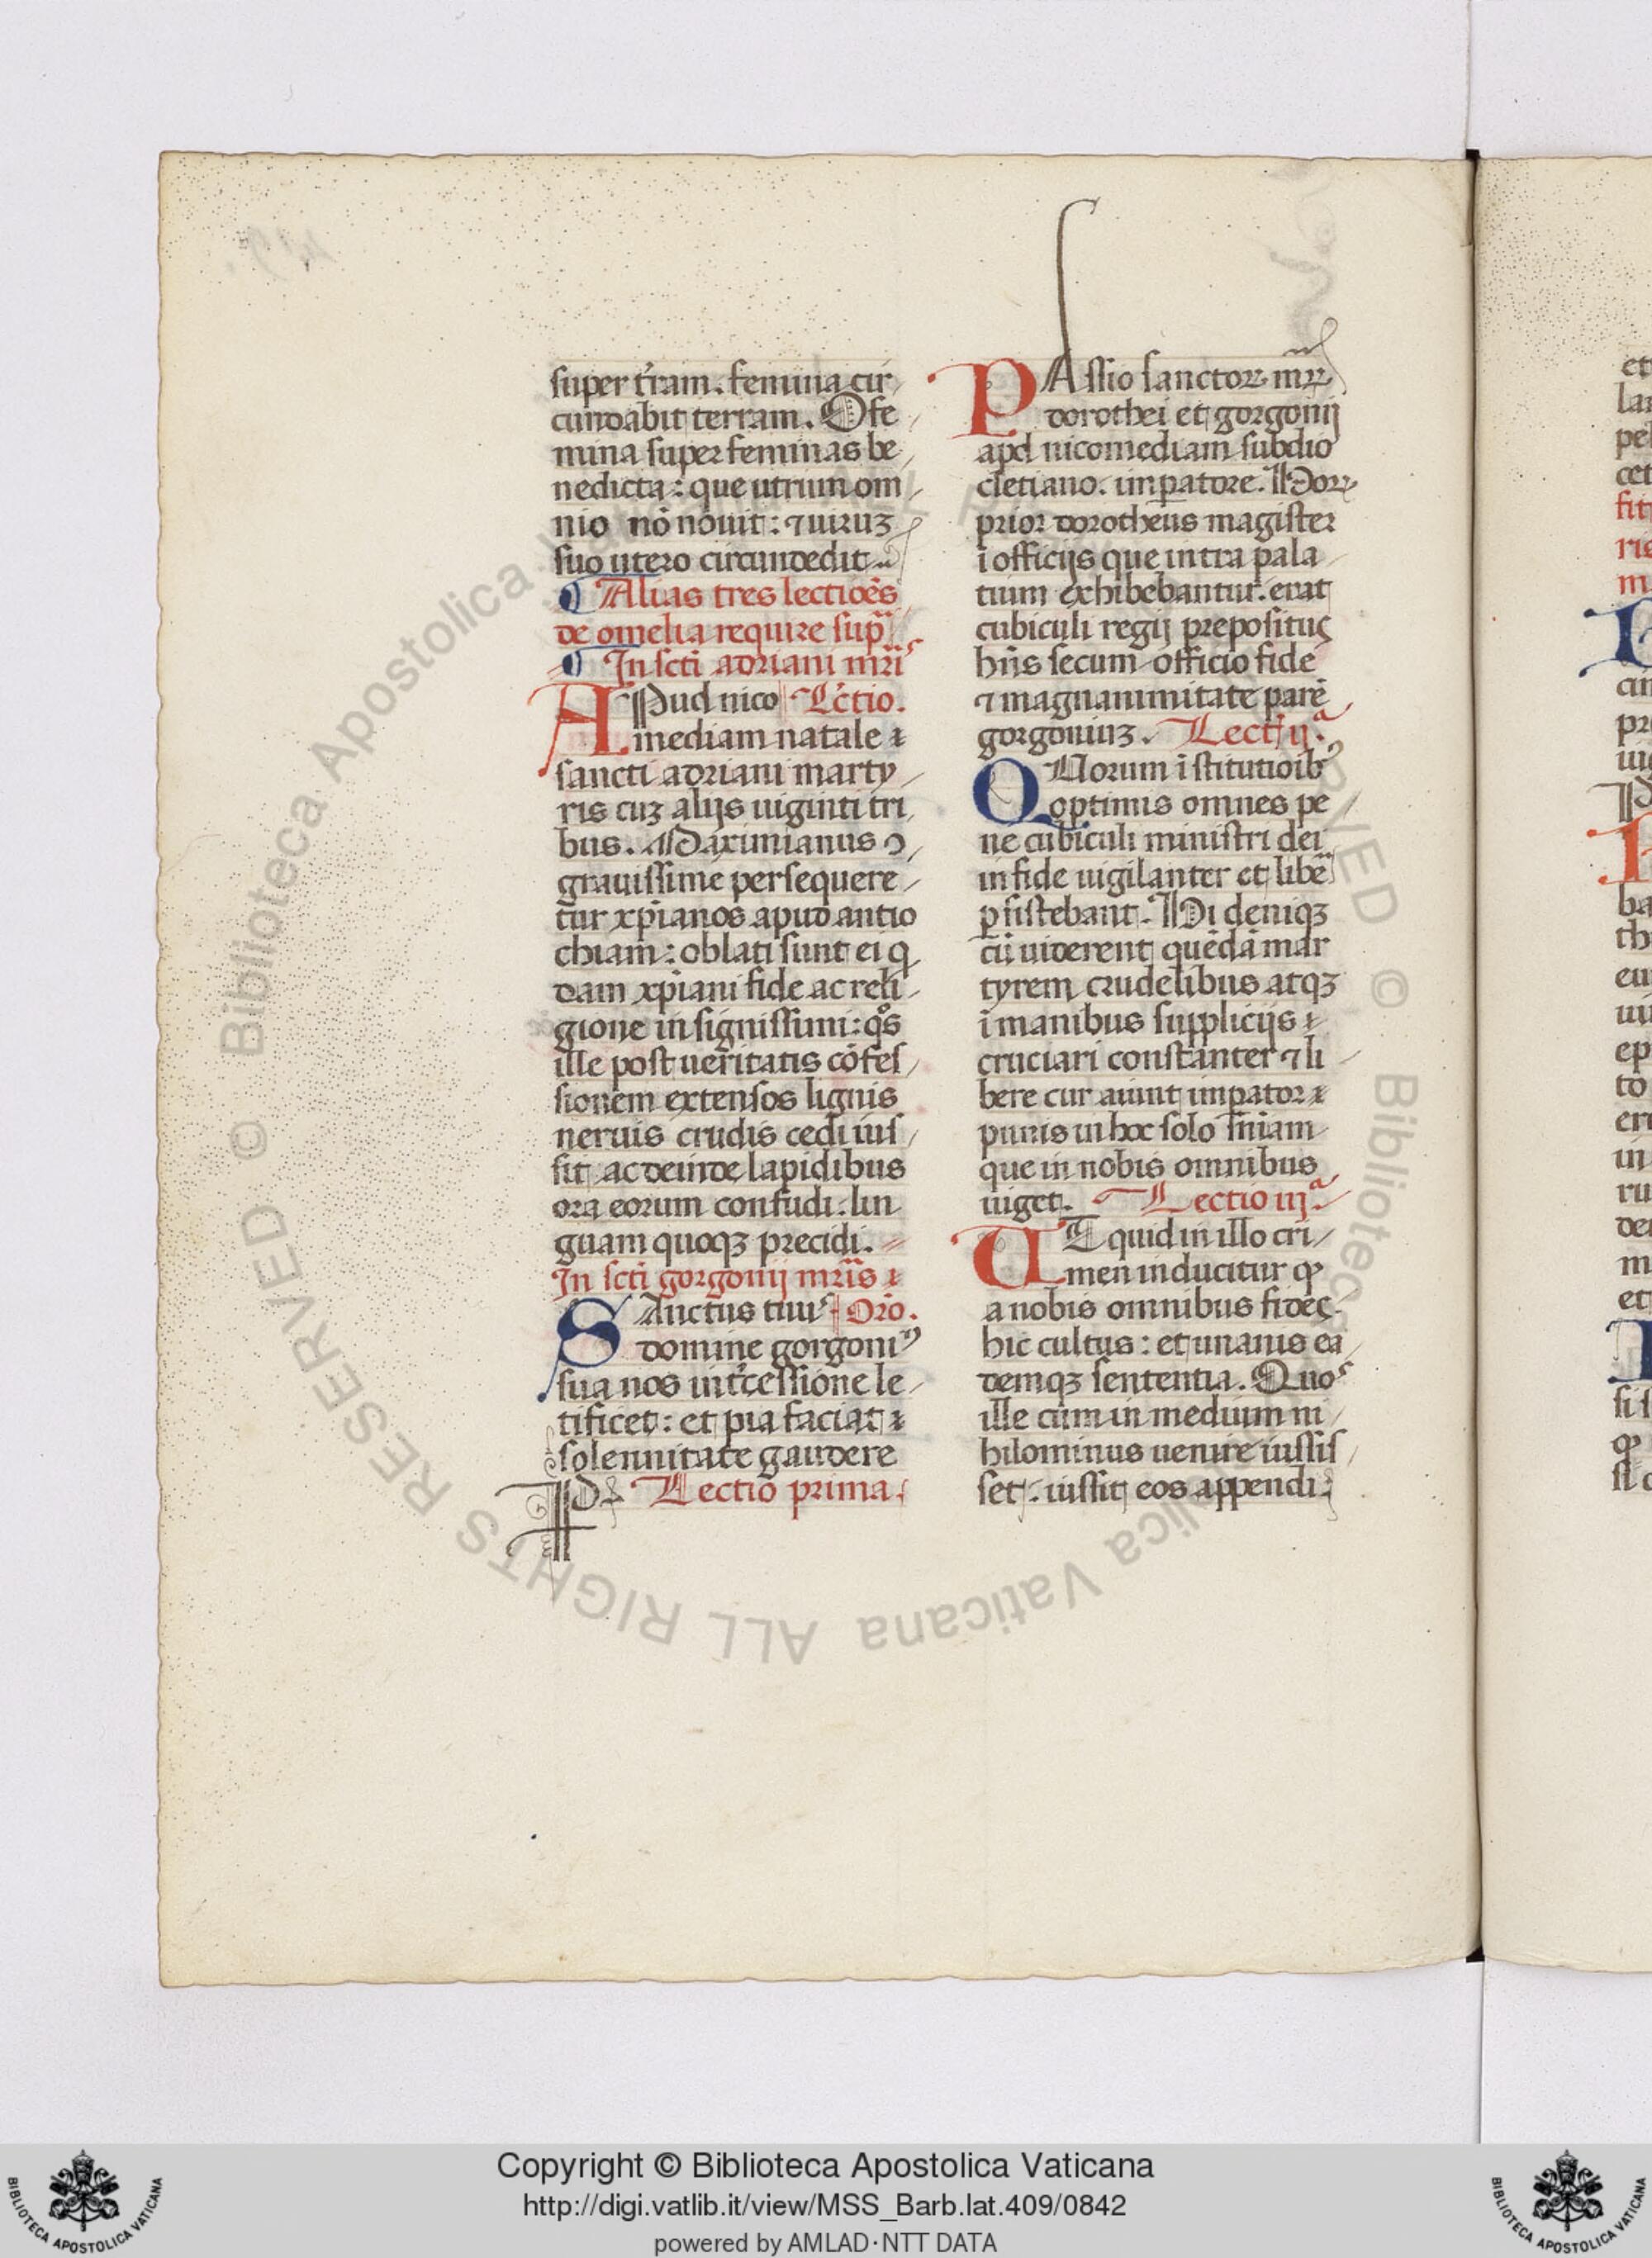 super t̄ram. femina cir
cundabit terram. O fe
mina super feminas be
nedicta: que utrium om
nio nō nouit: ⁊ uiruꝫ
suo utero circundedit.
¶ Alias tres lectiōes
de omelia require sup̄
¶ In sc̄ti adriani mr̄is
APud nico Lc̄tio.
mediam natale
sancti adriani marty
ris cuꝫ alijs uiginti tri
bus. Maximianus ↄ̄
grauissime persequere
tur xp̄ianos apud antio
chiam: oblati sunt ei q
dam xp̄iani fide ac reli
gione in signissimi: qͦs
ille post ueritatis cōfes
sionem extensos lignis
neruis crudis cedi iuſ
sit ac deinde lapidibus
ora eorum confudi. lin
guam quoqꝫ precidi.
In sc̄ti gorgonij mr̄is
SAnctus tuus Or̄o.
domine gorgoniꝰ
sua nos int̄cessione le
tificet: et pia faciat
solennitate gaudere
P Lectio prima.
PAssio sanctoꝝ mr̄ꝝ
dorothei et gorgonij
apd nicomediam sub dio
cletiano. imꝑatore. Hoꝝ
prior dorotheus magister
ī officijs que intra pala
tium exhibebantur. erat
cubiculi regij prepositus
hn̄s secum officio fide
⁊ magnanimitate parē
gorgoniuꝫ. Lect̄ ijᵃ.
QUorum īstitutioib
optimis omnes pe
ne cubiculi ministri dei
in fide uigilanter et libē
ꝑsistebant. Hi deniqꝫ
cū uiderent quēdā mar
tyrem crudelibus atqꝫ
īmanibus supplicijs
cruciari constanter ⁊ li
bere cur aiunt imꝑator
punis in hoc solo sn̄iam
que in nobis omnibus
uiget. Lectio iijᵃ.
UT quid in illo cri
men inducitur ꝙ
a nobis omnibus fides
hic cultus: et unanis ea
demqꝫ sententia. Quos
ille cum in medium ni
hilominus uenire iussis
set. iussit eos appendi
Copyright © Biblioteca Apostolica Vaticana
http://digi.vatlib.it/view/MSS_Barb.lat.409/0842
powered by AMLAD·NTT DATA
© Biblioteca Apostolica Vaticana ALL RIGHTS RESERVED
BIBLIOTECA APOSTOLICA VATICANA
BIBLIOTECA APOSTOLICA VATICANA